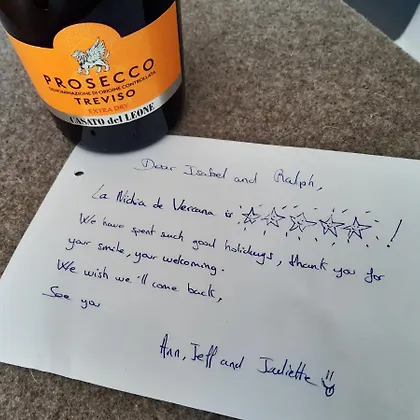 PROSECCO
DENOMINAZIONE DI ORIGINE CONTROLLATA
TREVISO
EXTRA DRY
CASATO del LEONE
Dear Isabel and Ralph,
La Nidia de Vercana is ☆☆☆☆☆ !
We have spent such good holidays, thank you for
your smile, your welcoming.
We wish we'll come back,
See you
Ann, Jeff and Juliette